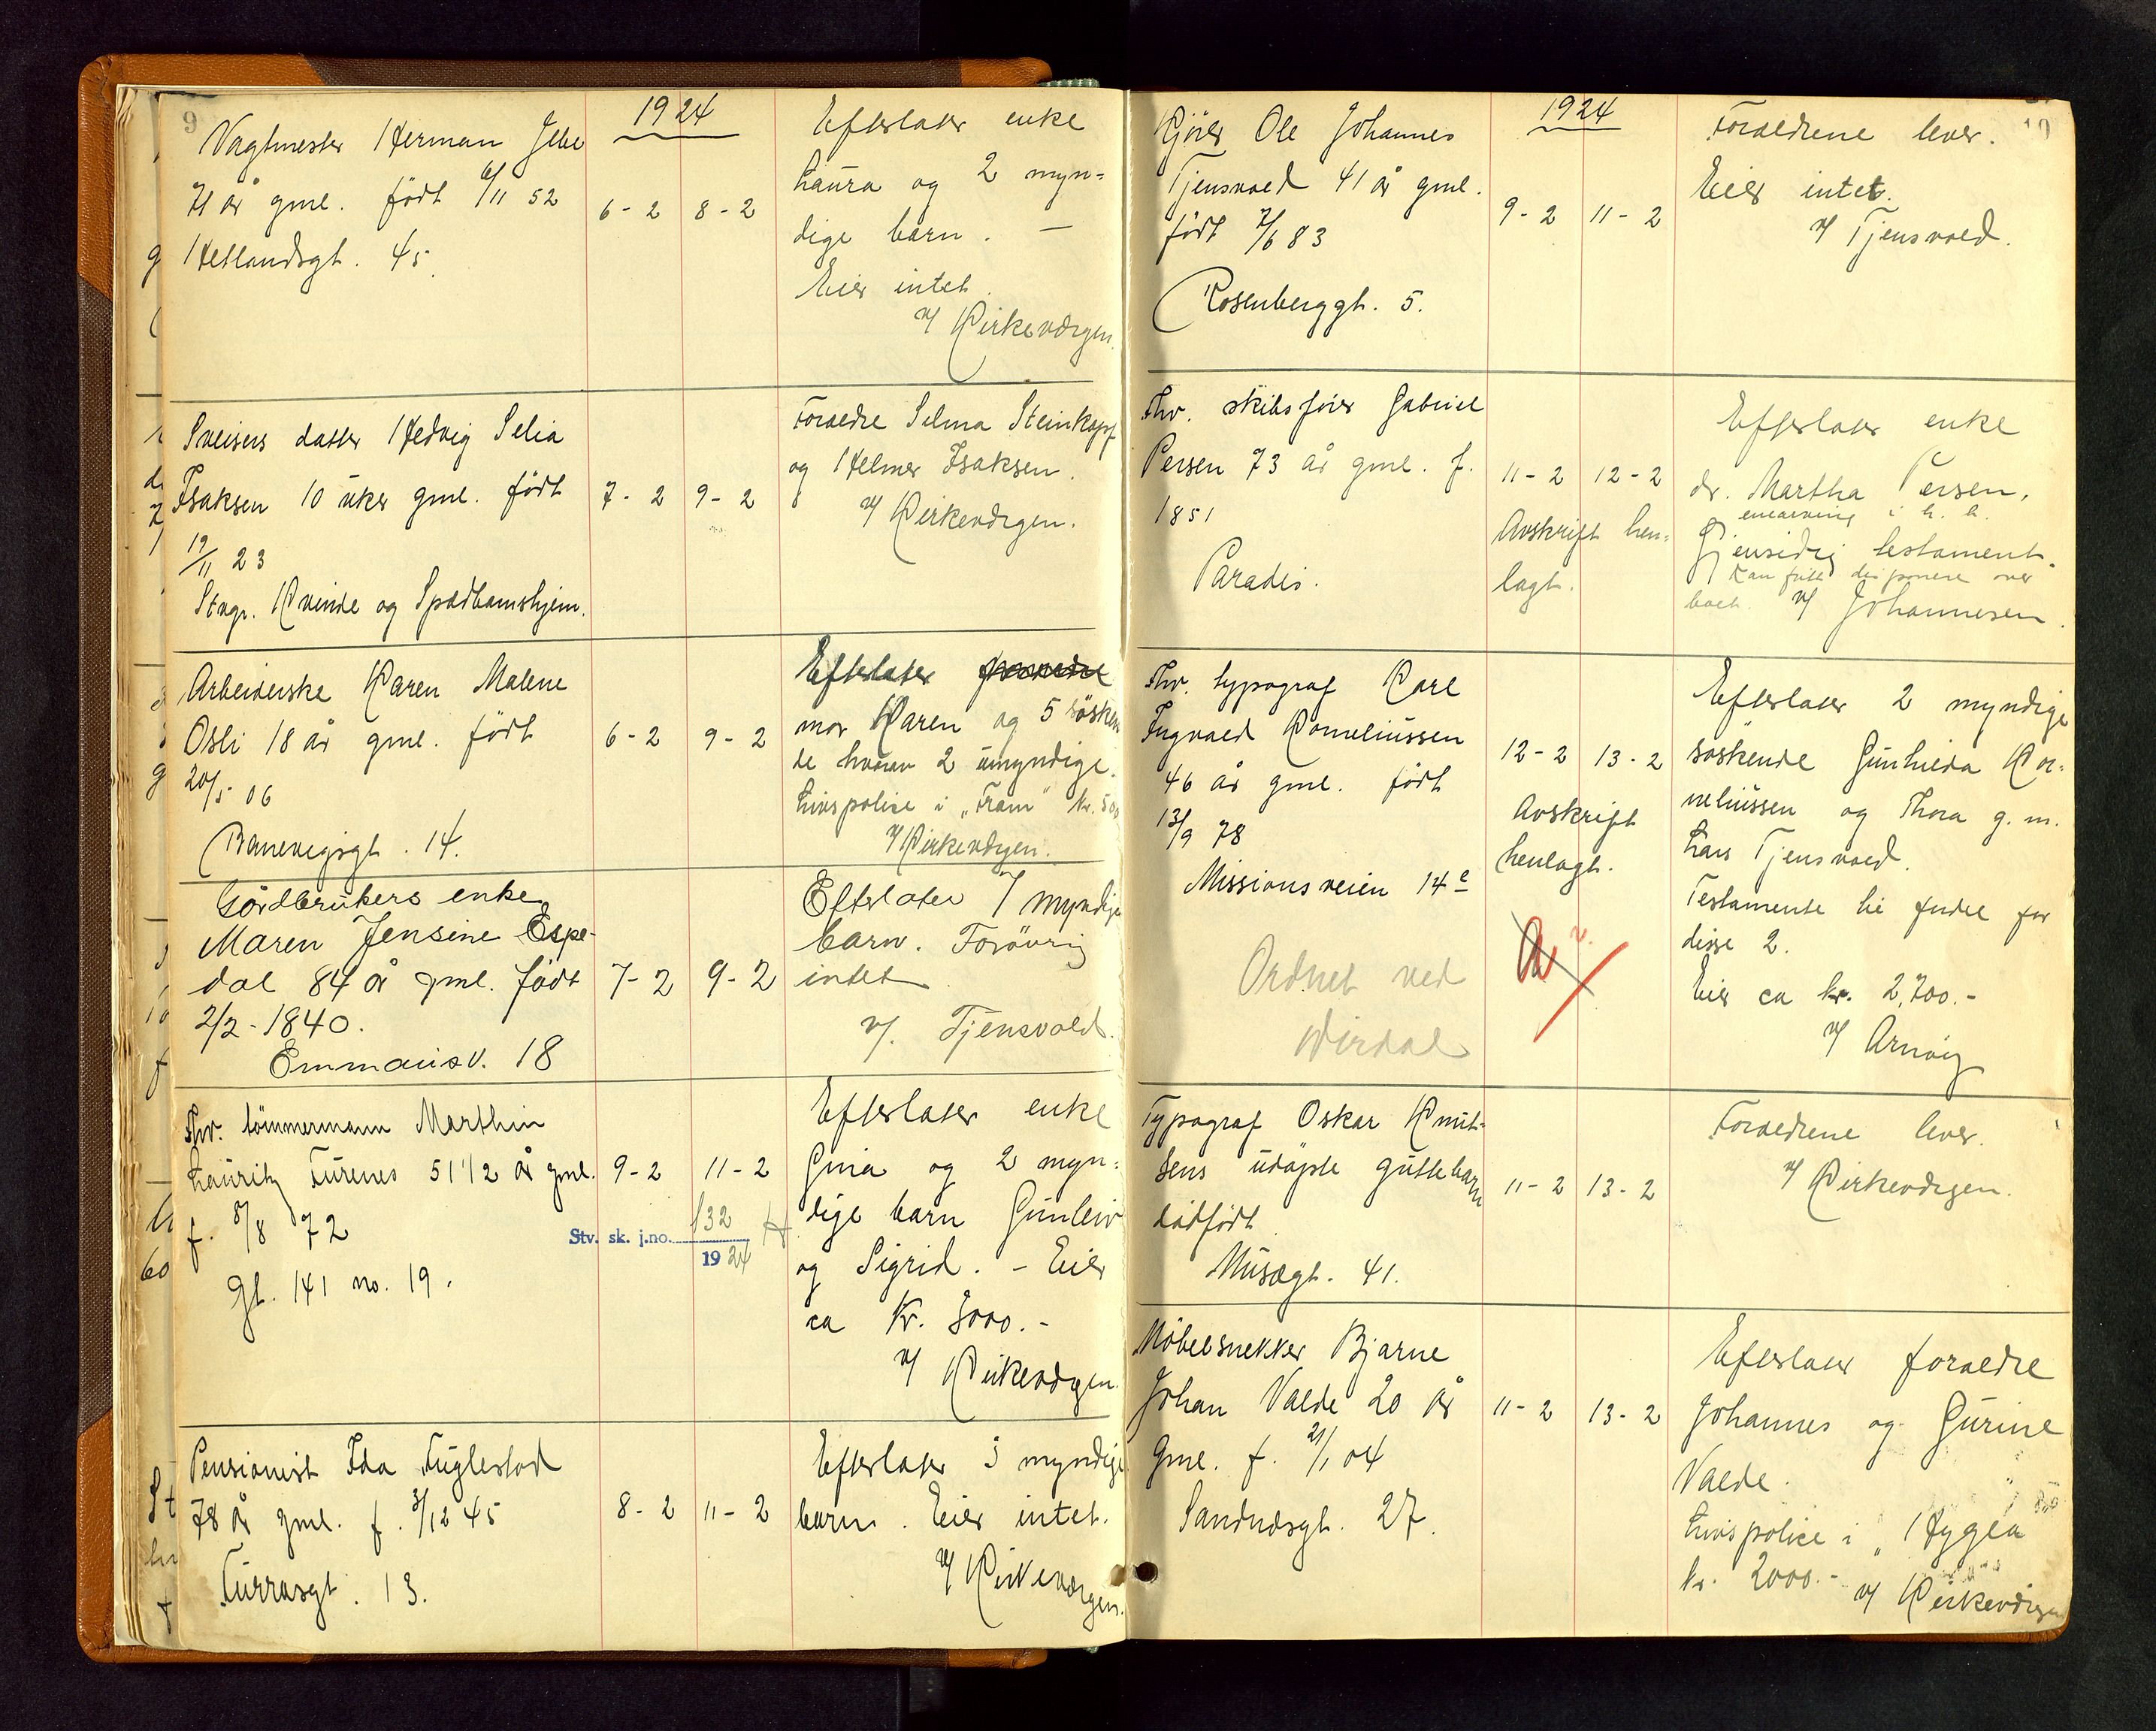 9
1924
Vagtmester Herman Jelle
71 år gml. født 6/11 52
Hetlandsgt. 45.
6-2 8-2
Efterlater enke
Laura og 2 myn=
dige barn. —
Eier intet.
v/ Kirkevergen.
Sveisers datter Hedvig Selia
Isaksen 10 uker gml. født
19/11 23
Stvgr. Kvinde og Spædbarnshjem.
7-2 9-2
Forældre Selma Steinkopf
og Helmer Isaksen.
v/ Kirkevergen.
Arbeiderske Karen Malene
Osli 18 år gml. født
20/5 06
Banevigsgt. 14.
6-2 9-2
Efterlater
mor Karen og 5 søsken
de hvorav 2 umyndige.
Livspolise i „Fram" kr. 500
v/ Kirkevergen.
Gårdbrukers enke
Maren Jensine Espe-
dal 84 år gml. født
2/2-1840.
Emmausv. 18
7-2 9-2
Efterlater 7 myndige
barn. Forøvrig
intet
v/. Tjensvold.
Fhv. tømmermann Marthin
Lauritz Furenes 51 1/2 år gml.
f. 8/8 72
Gt. 141 no. 19.
9-2 11-2
Stv. sk. j.no. 132
1924
Efterlater enke
Gina og 2 myn=
dige barn Gunleiv
og Sigrid. - Eier
ca Kr. 3000.-
v/ Kirkevergen.
Pensionist Ida Fuglestad
78 år gml. f. 3/12 45
Furrasgt. 13.
8-2 11-2
Efterlater 3 myndige
barn. Eier intet.
v/ Kirkevergen.
10
1924
Kjører Ole Johannes
Tjensvold 41 år gml.
født 7/6 83
Rosenberggt. 5.
9-2 11-2
Forældrene lever.
Eier intet.
v/ Tjensvold.
Fhv. skibsfører Gabriel
Persen 73 år gml. f.
1851
Paradis.
11-2 12-2
Avskrift hen=
lagt.
Efterlater enke
Martha Persen.
enearving i h. h.
Gjensidig testament.
Kan fritt disponere over
boet. v/ Johannesen.
Fhv. typograf Karl
Ingvald Korneliussen
46 år gml. født
13/9 78
Missionsveien 14 e
Ordnet ved
Wirdal
12-2 13-2
Avskrift
henlagt.
Efterlater 2 myndige
søskende Gunhilda Kor=
neliussen og Thora g. m.
Lars Tjensvold.
Testamente til fordel for
disse 2.
Eier ca kr. 2,700.-
v/ Arnøy
Typograf Oskar Knut-
sens udøpte guttebarn
dødfødt
Musægt. 41.
11-2 13-2
Forældrene lever.
v/ Kirkevergen.
Møbelsnekker Bjarne
Johan Valde 20 år
gml. f. 21/1 04
Sandnæsgt. 27.
11-2 13-2
Efterlater forældre
Johannes og Gurine
Valde.
Livspolice i „Hygea"
kr. 2000.-
v/ Kirkevergen